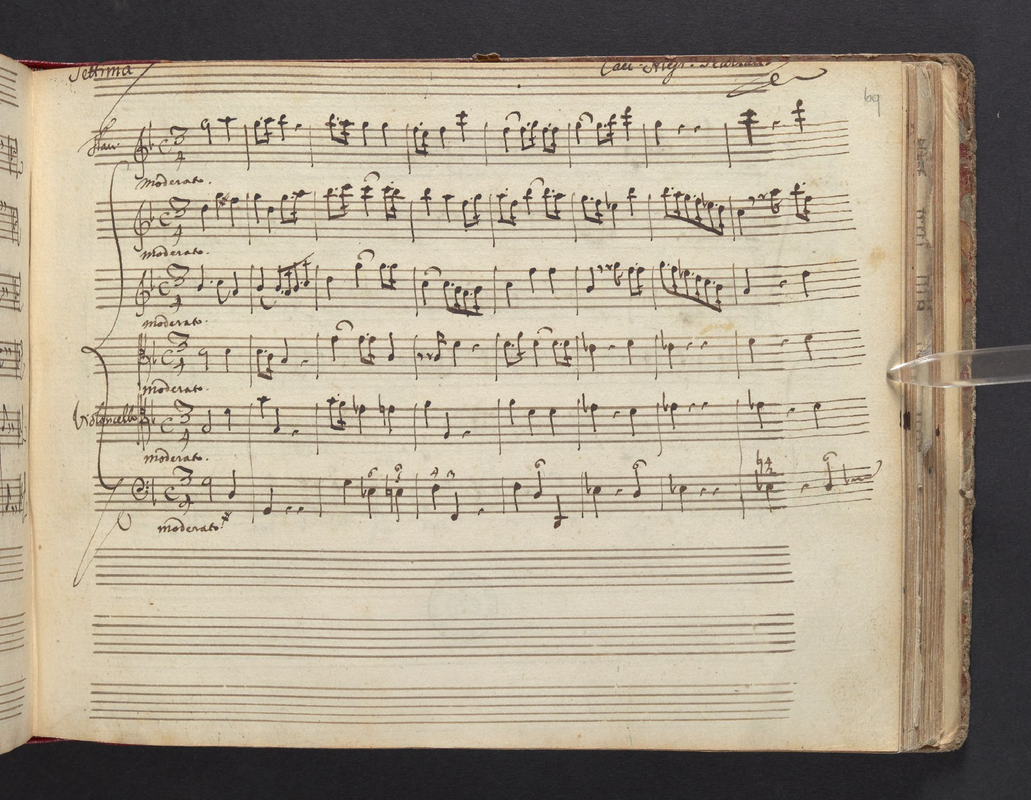 Settima
69
Flau:
moderato.
moderato.
moderato.
moderato.
Violoncello
moderato.
moderato.